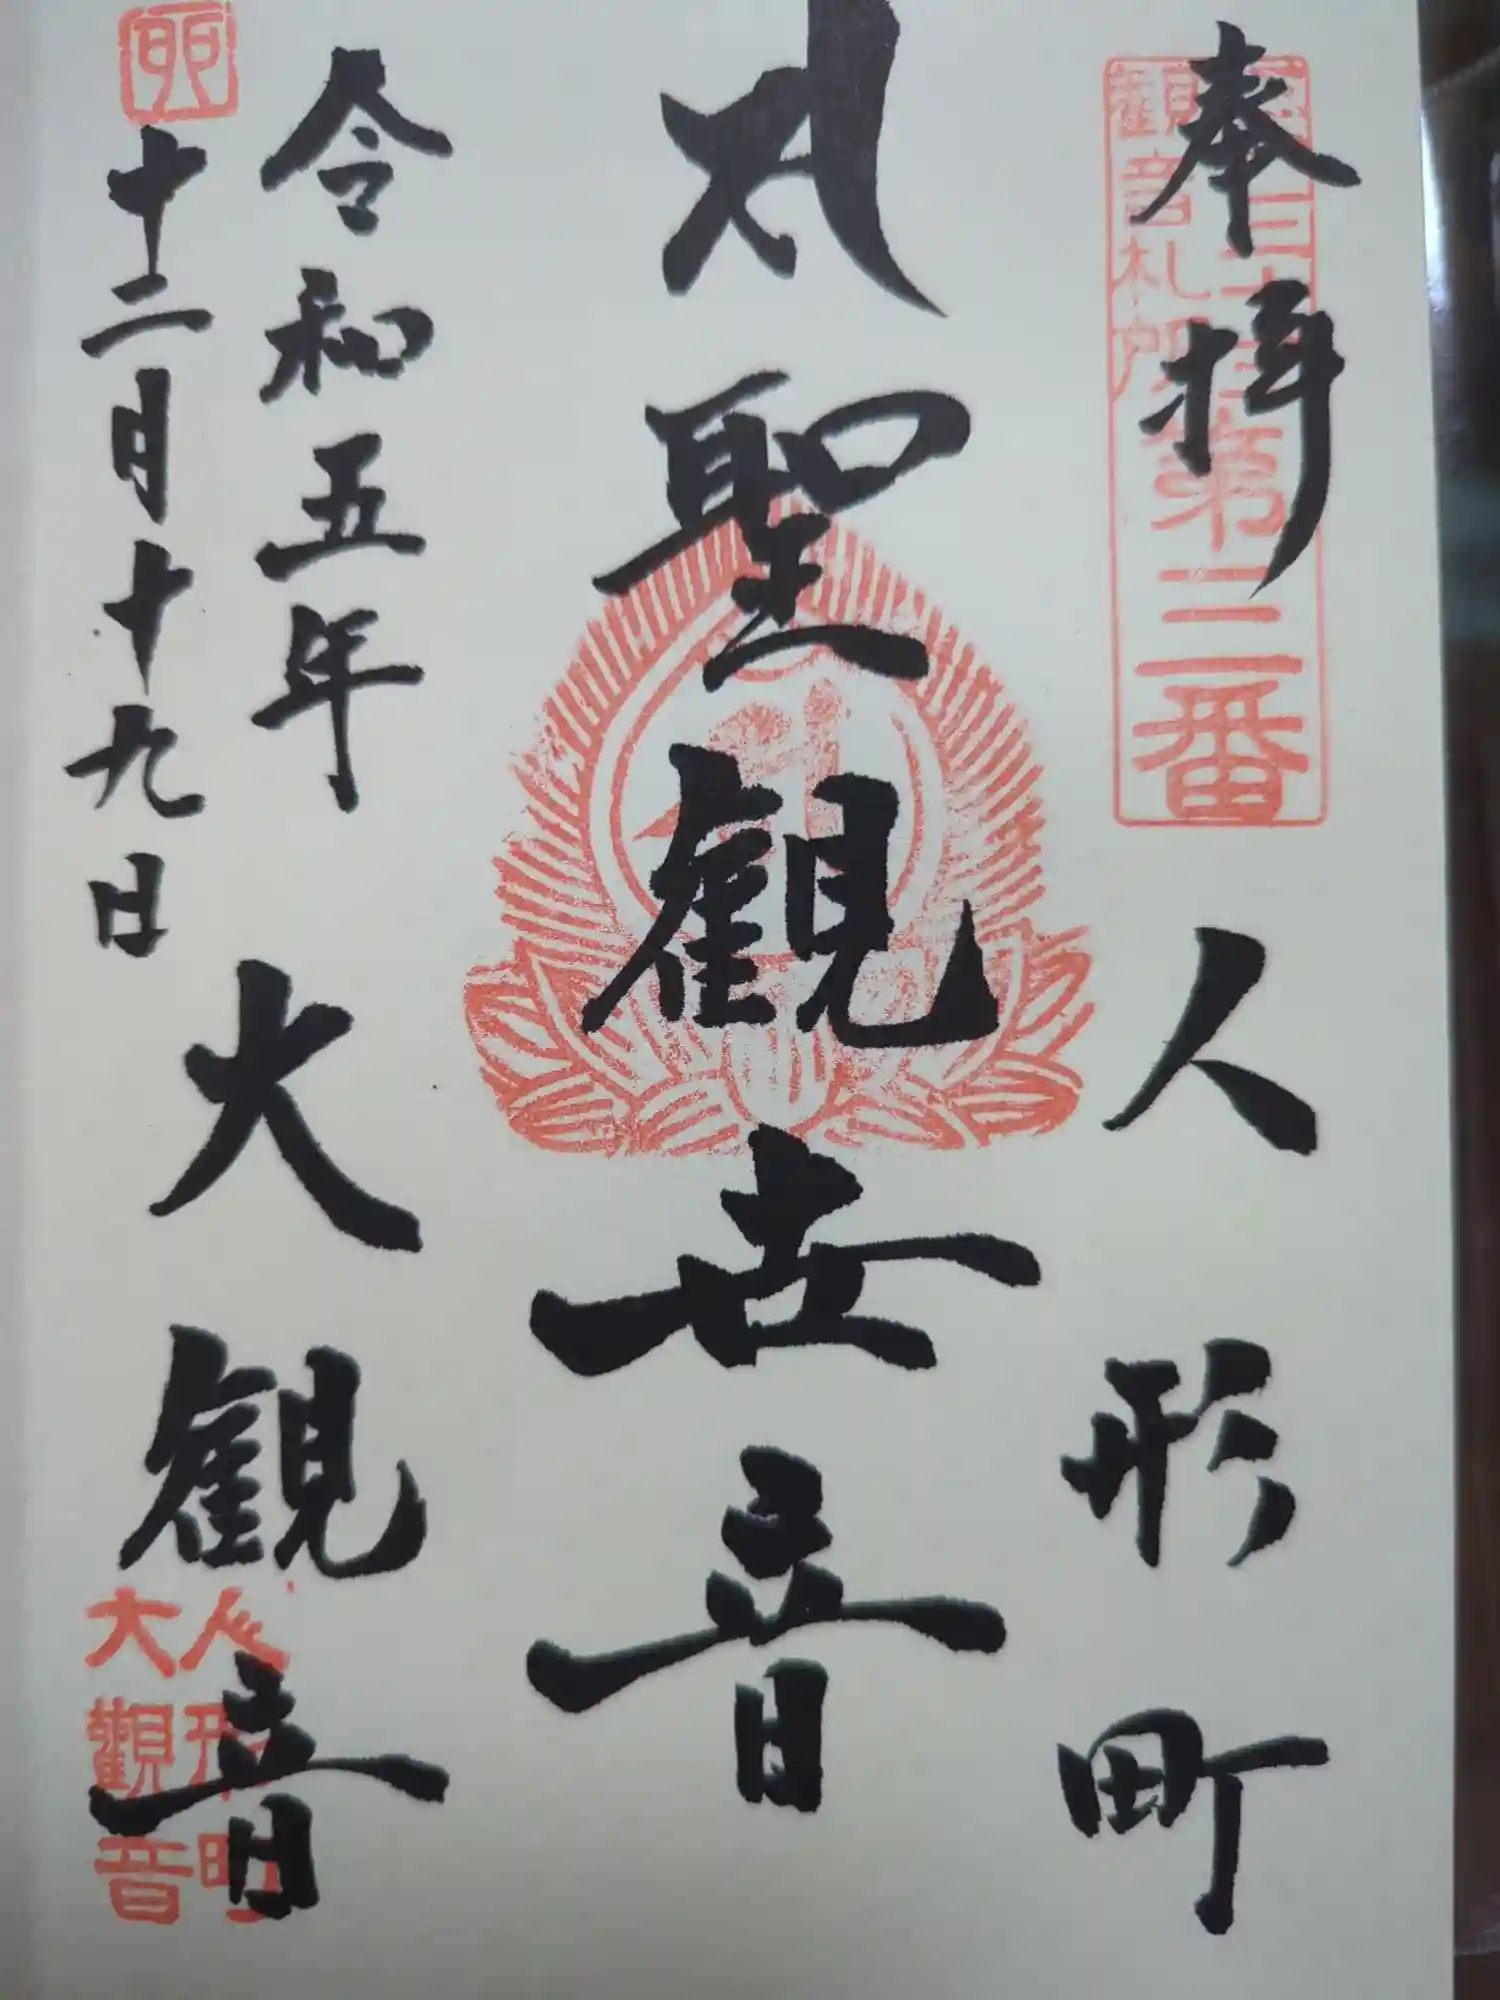 奉拝
人形町
聖観世音
令和五年
十二月十九日
大観音
観音札所
第三番
卯
人形町
大観音